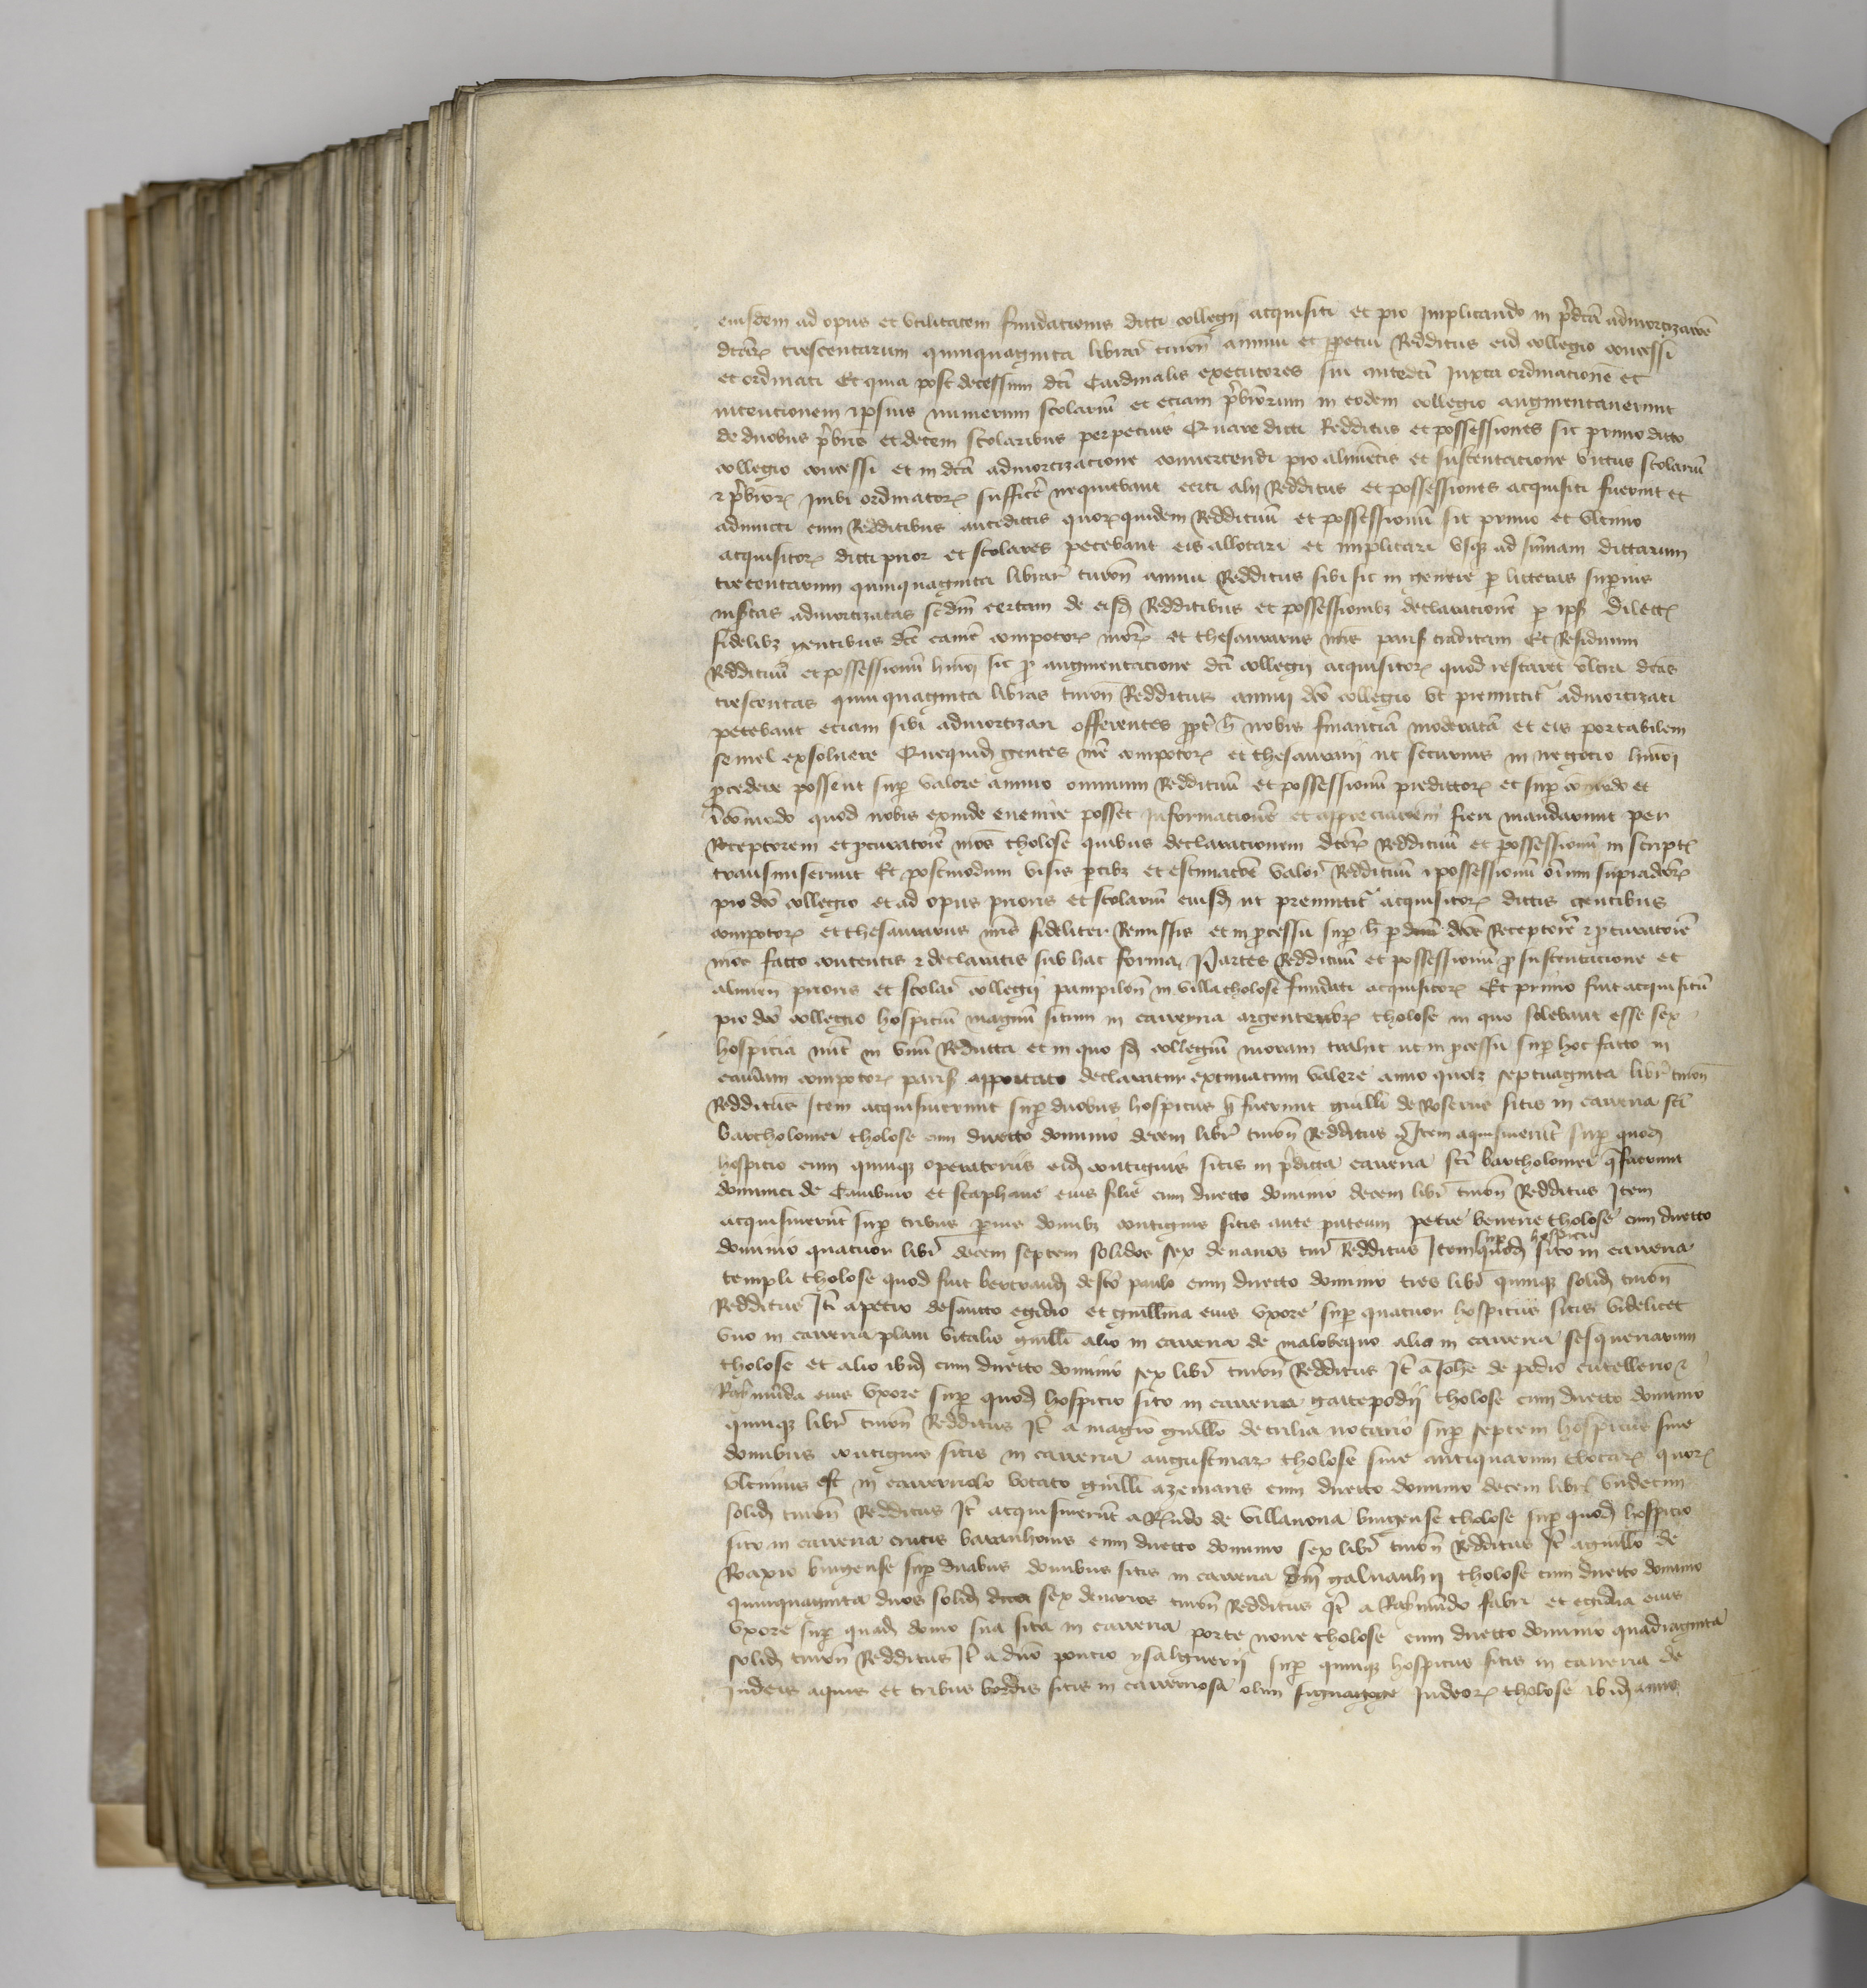 eiusdem ad opus et utilitatem fundationis dicti collegii acquisiti et pro implicando in p̃dcã admortizac̃õe
dc̃ar̃ trescentarum quinquaginta librar̃ turoñ annui et ꝑpetui Redditus eid collegio concessi
et ordinati Et quia post decessum dc̃i Cardinalis executores sui antedc̃i iuxta ordinac̃onẽ et
intentionem ipsius numerum scolariũ et eciam p̃b̃rorum in eodem collegio augmentauerunt
de duobus p̃b̃ris et decem scolaribus perpetuis Quare dicti Redditus et possessiones sic primo dicto
collegio concessi et in dc̃a admortizacione conuertendi pro alimẽtis et sustentacione victus scolariũ
et p̃b̃ror̃ inibi ordinator̃ sufficẽ nequibant certi alii Redditus et possessiones acquisiti fuerint et
adiuncti cum Redditibus antedictis quor̃ quidem Reddituũ et possessionũ sic primo et ultimo
acquisitor̃ dicti prior et scolares petebant eis allocari et implicari usqz ad sũmam dictarum
trecentarum quinquaginta librar̃ turoñ annui Redditus sibi sic in genere ꝑ litteras superius
insc̃tas admortizatas sc̃dm certam de eisd̃ Redditibus et possessionibz declarationẽ ꝑ ip̃s dilect̃
fidelibz gentibus dc̃e camẽ compotor̃ nr̃or̃ et thesaurarus nr̃is paris̃ traditam Et Residuum
Reddituũ et possessionũ hmõi sic ꝓ augmentacione dc̃i collegii acquisitor̃ quod restaret ultra dc̃as
trescentas quinquaginta libras turoñ Redditus annui dc̃o collegio ut premittit̃ admortizati
petebant eciam sibi admortizari offerentes ꝓpt̃ h̃ nobis financiã moderatã et eis portabilem
semel exsoluere Quequid̃ gentes nr̃e compotor̃ et thesaurarii ut securius in negocio hmõi
ꝓcedere possent suꝑ valore annuo omnium Reddituũ et possessionũ predictor̃ et suꝑ cõmodo et
incõmodo quod nobis exinde euenire posset informationẽ et appreciac̃oem fieri mandarunt per
Receptorem et ꝓcuratorẽ nr̃os tholose quibus declaracionem dc̃or̃ Reddituũ et possessionũ in script̃
transmiserunt Et postmodum visis ꝑtibz et estimac̃oẽ valor̃ Reddituũ et possessionũ õium supradc̃or̃
pro dc̃o collegio et ad opus prioris et scolariũ eiusd̃ ut premittit̃ acquisitor̃ dictis gentibus
compotor̃ et thesaurarus nr̃is fideliter Remissis et in ꝓcessu suꝑ h̃ ꝑ dc̃os Receptorẽ et ꝓcuratorẽ
nr̃os facto contentis et declaratis sub hac forma Partes Reddituũ et possessionũ ꝓ sustentacione et
alimen prioris et scolar̃ collegii pampiloñ in villa tholose fundati acquisitor̃ Et primo fuit acquisitũ
pro dc̃o collegio hospiciũ magnũ situm in carreyria argenterior̃ tholose in quo solebant esse sex
hospicia nũc in unũ Reducta et in quo id̃ collegiũ moram trahit ut in ꝓcessu suꝑ hoc facto in
camam compotor̃ paris̃ apportato declaratur extimatum valere anno quolz septuaginta libr̃ turoñ
Redditus Item acquisiuerunt suꝑ duobus hospicius q̃ fuerunt guill̃i de Roserus sitis in carreria sc̃i
bartholomei tholose cum directo dominio decem libr̃ turoñ Redditus Item aquisiuerũt suꝑ quod̃
hospicio cum quinqz operatoriis eid̃ contiguis sitis in p̃dicta carreria sc̃i bartholomei q̃ fuerunt
domini de Caubino et stephane eius filie cum directo dominio decem libr̃ turoñ Redditus Item
acquisiuerũt suꝑ tribus ꝑuis domibz contiguis sitis ante puteum petre venerie tholose cum directo
dominio quatuor libr̃ decem septem solidos sex denarios tur̃ Redditus Item suꝑ quod̃ hospiciũ sito in carreria
templi tholose quod fuit bertrandi de sc̃o paulo cum directo dominio tres libr̃ quinqz solid̃ turoñ
Redditus It̃ a petro de sancto egidio et guill̃ma eius uxore suꝑ quatuor hospicus sitis videlicet
uno in carreria plani vitalis guill̃i alio in carreria de malobequo alio in carreria sesqueriarum
tholose et alio ibid̃ cum directo dominio sex libr̃ turoñ Redditus It̃ a Joh̃e de podio cutellerio et
Raymũda eius uxore suꝑ quod̃ hospicio sito in carreria gaitepodii tholose cum directo dominio
quinqz libr̃ turoñ Redditus It̃ a magr̃o guill̃o de tulia notario suꝑ septem hospicius siue
domibus contiguis sitis in carreria augustinar̃ tholose siue antiquarum quor̃
ultimus est in carreriolo vocato guill̃i azemaris cum directo dominio decem libr̃ undecim
solid̃ turoñ Redditus It̃ acquisiuerũt a Rm̃ũdo de villanoua burgense tholose suꝑ quod̃ hospicio
sito in carreria crucis baranhonis cum directo dominio sex libr̃ turoñ Redditus It̃ a guill̃o de
Roaxio burgense suꝑ duabus domibus sitis in carreria dñi galuanhii tholose cum directo dominio
quinquaginta duos solid̃ sex denarios turoñ Redditus It̃ a Raymũdo fabri et egidia eius
uxore suꝑ quad̃ domo sua sita in carreria porte noue tholose cum directo dominio quadraginta
solid̃ turoñ Redditus It̃ a dño poncio ysalguerii suꝑ quinqz hospicus sitis in carreria de
Judeis aquis et tribus bordis sitis in carreriosa olim sinagoge Judeor̃ tholose ibid̃